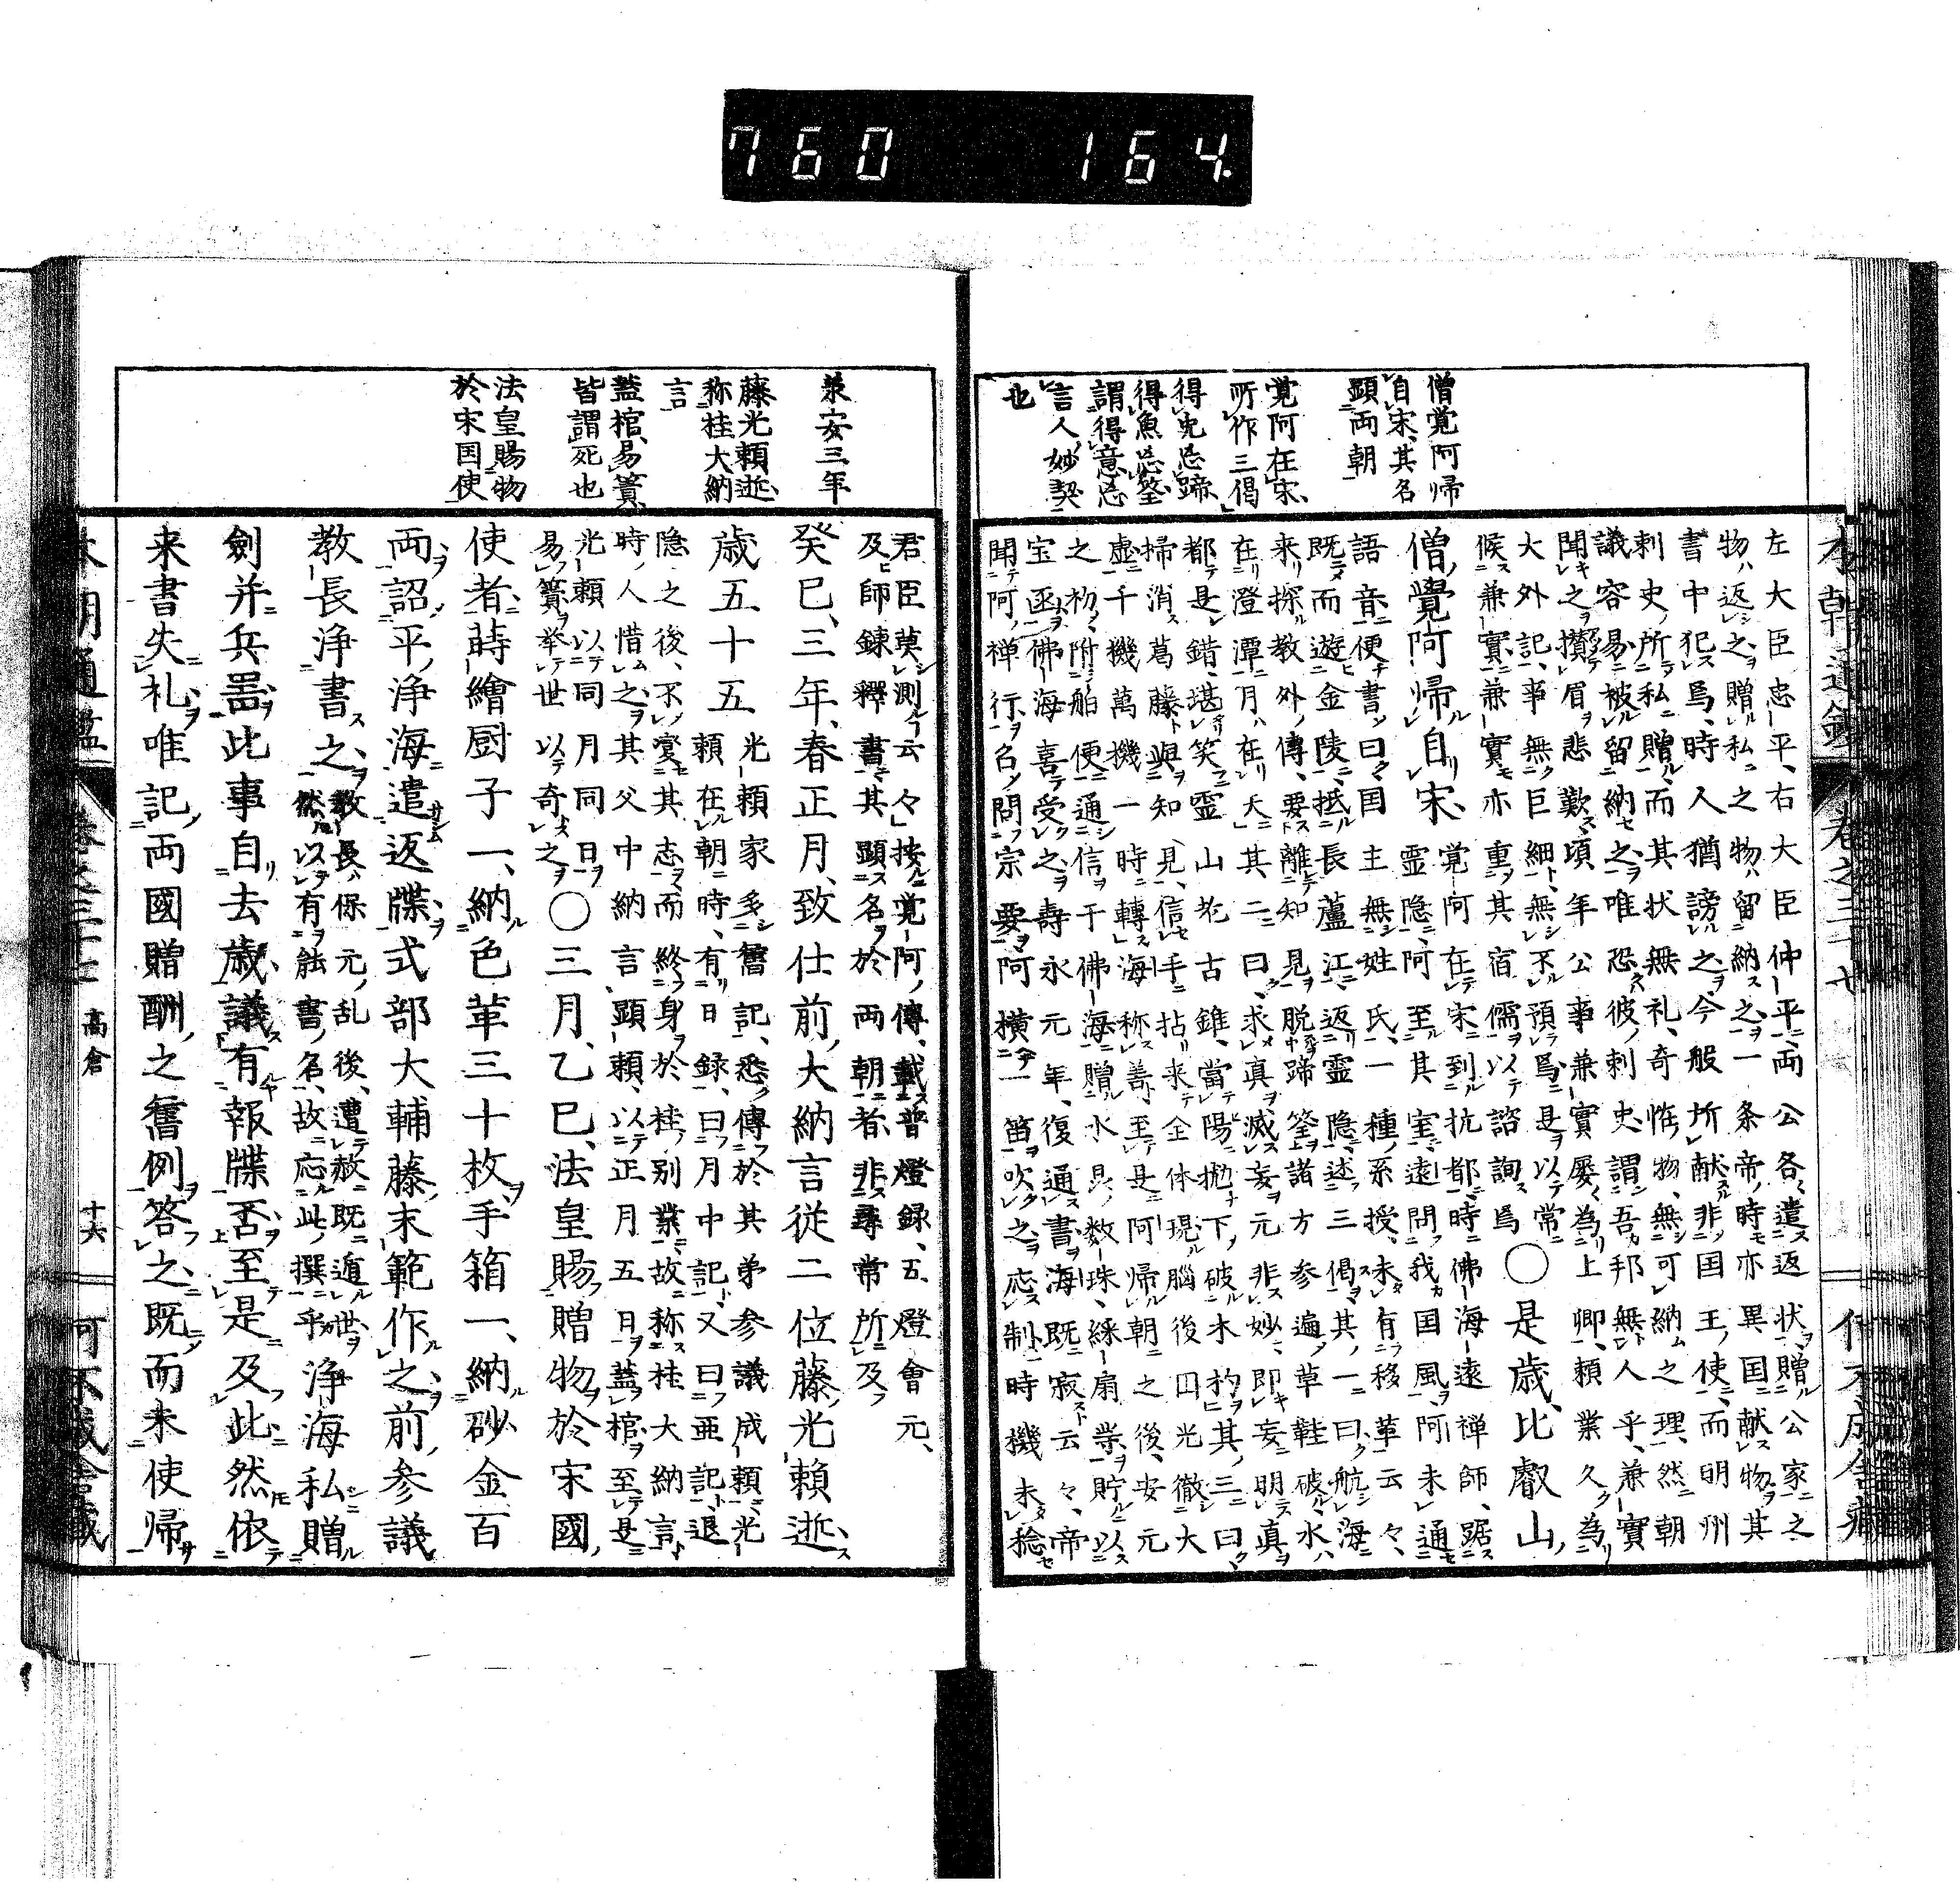 本朝通鑑
巻之三十七
僧覚阿帰
自宋、其名
顕両朝
覚阿在宋、
所作三偈
得兎忘蹄
得魚忘筌
謂得意忘
言人妙契
也
左大臣忠平、右大臣仲平、両公各遣返状、贈公家之
物返之、贈私之物留納之、一条帝時亦異国献物、其
書中犯焉、時人猶謗之、今般所献非国王使、而明州
刺史所私贈、而其状無礼、奇恠物、無可納之理、然朝
議容易被留納之、唯恐彼刺史謂吾邦無人乎、兼實
聞之攅眉悲歎、頃年公事兼實屡為上卿、頼業久為
大外記、事無巨細、無不預焉、是以常
候兼實、兼實亦重其宿儒、以諮詢焉
〇是歳、比叡山
僧覺阿帰自宋、
覚阿在宋、到抗都、時佛海遠禅師、踞
霊隠、阿至其室、遠問我国風、阿未通
語音、便書曰、国主無姓氏、一種系授、未有移革云々、
既而遊金陵、抵長蘆江、返霊隠、述三偈、其一曰、航海
来探教外傳、要離知見脱蹄筌、諸方参遍草鞋破、水
在澄潭月在天、其二曰、求真滅妄元非妙、即妄明真
都是錯、堪笑霊山老古錐、當陽抛下破木杓、其三曰、
掃消葛藤與知見、信手拈来全体現、腦後囙光徹大
虚、千機萬機一時轉、海称善、至是阿帰朝之後、安元
之初附舶便通信于佛海、贈水晶数珠、綵扇、貯以
宝函、佛海喜受之、壽永元年、復通書海既寂云々、帝
聞阿禅行、召問宗要、阿横一笛吹之、応制時機未稔
羕安三年
藤光頼逝
称桂大納
言
蓋棺、易簀、
皆謂死也
法皇賜物
於宋国使
君臣莫測云々、按覚阿傳、載普燈録、五燈會元、
及師錬釋書、其顕名於両朝者、非尋常所及
癸巳、三年、春正月、致仕前大納言従二位藤光頼逝、
歳五十五
光頼家多舊記、悉傳於其弟参議成頼、光
頼在朝時、有日録、曰月中記、又曰亜記、退
隠之後、不変其志而終身於桂別業、故称桂大納言、
時人惜之、其父中納言顕頼、以正月五日蓋棺、至是
光頼以同月同日
易簀、挙世以奇之
〇三月、乙巳、法皇賜贈物於宋國
使者、蒔繪厨子一、納色革三十枚、手箱一、納砂金百
両、詔平浄海遣返牒、式部大輔藤永範作之、前参議
教長浄書之、
教長保元乱後、遭赦既遁世、
然以有能書名、故応此撰乎
浄海私贈
劍并兵噐、此事自去歳議有報牒否、至是及此、然依
来書失礼、唯記両國贈酬之舊例答之、既而未使帰
高倉
十六